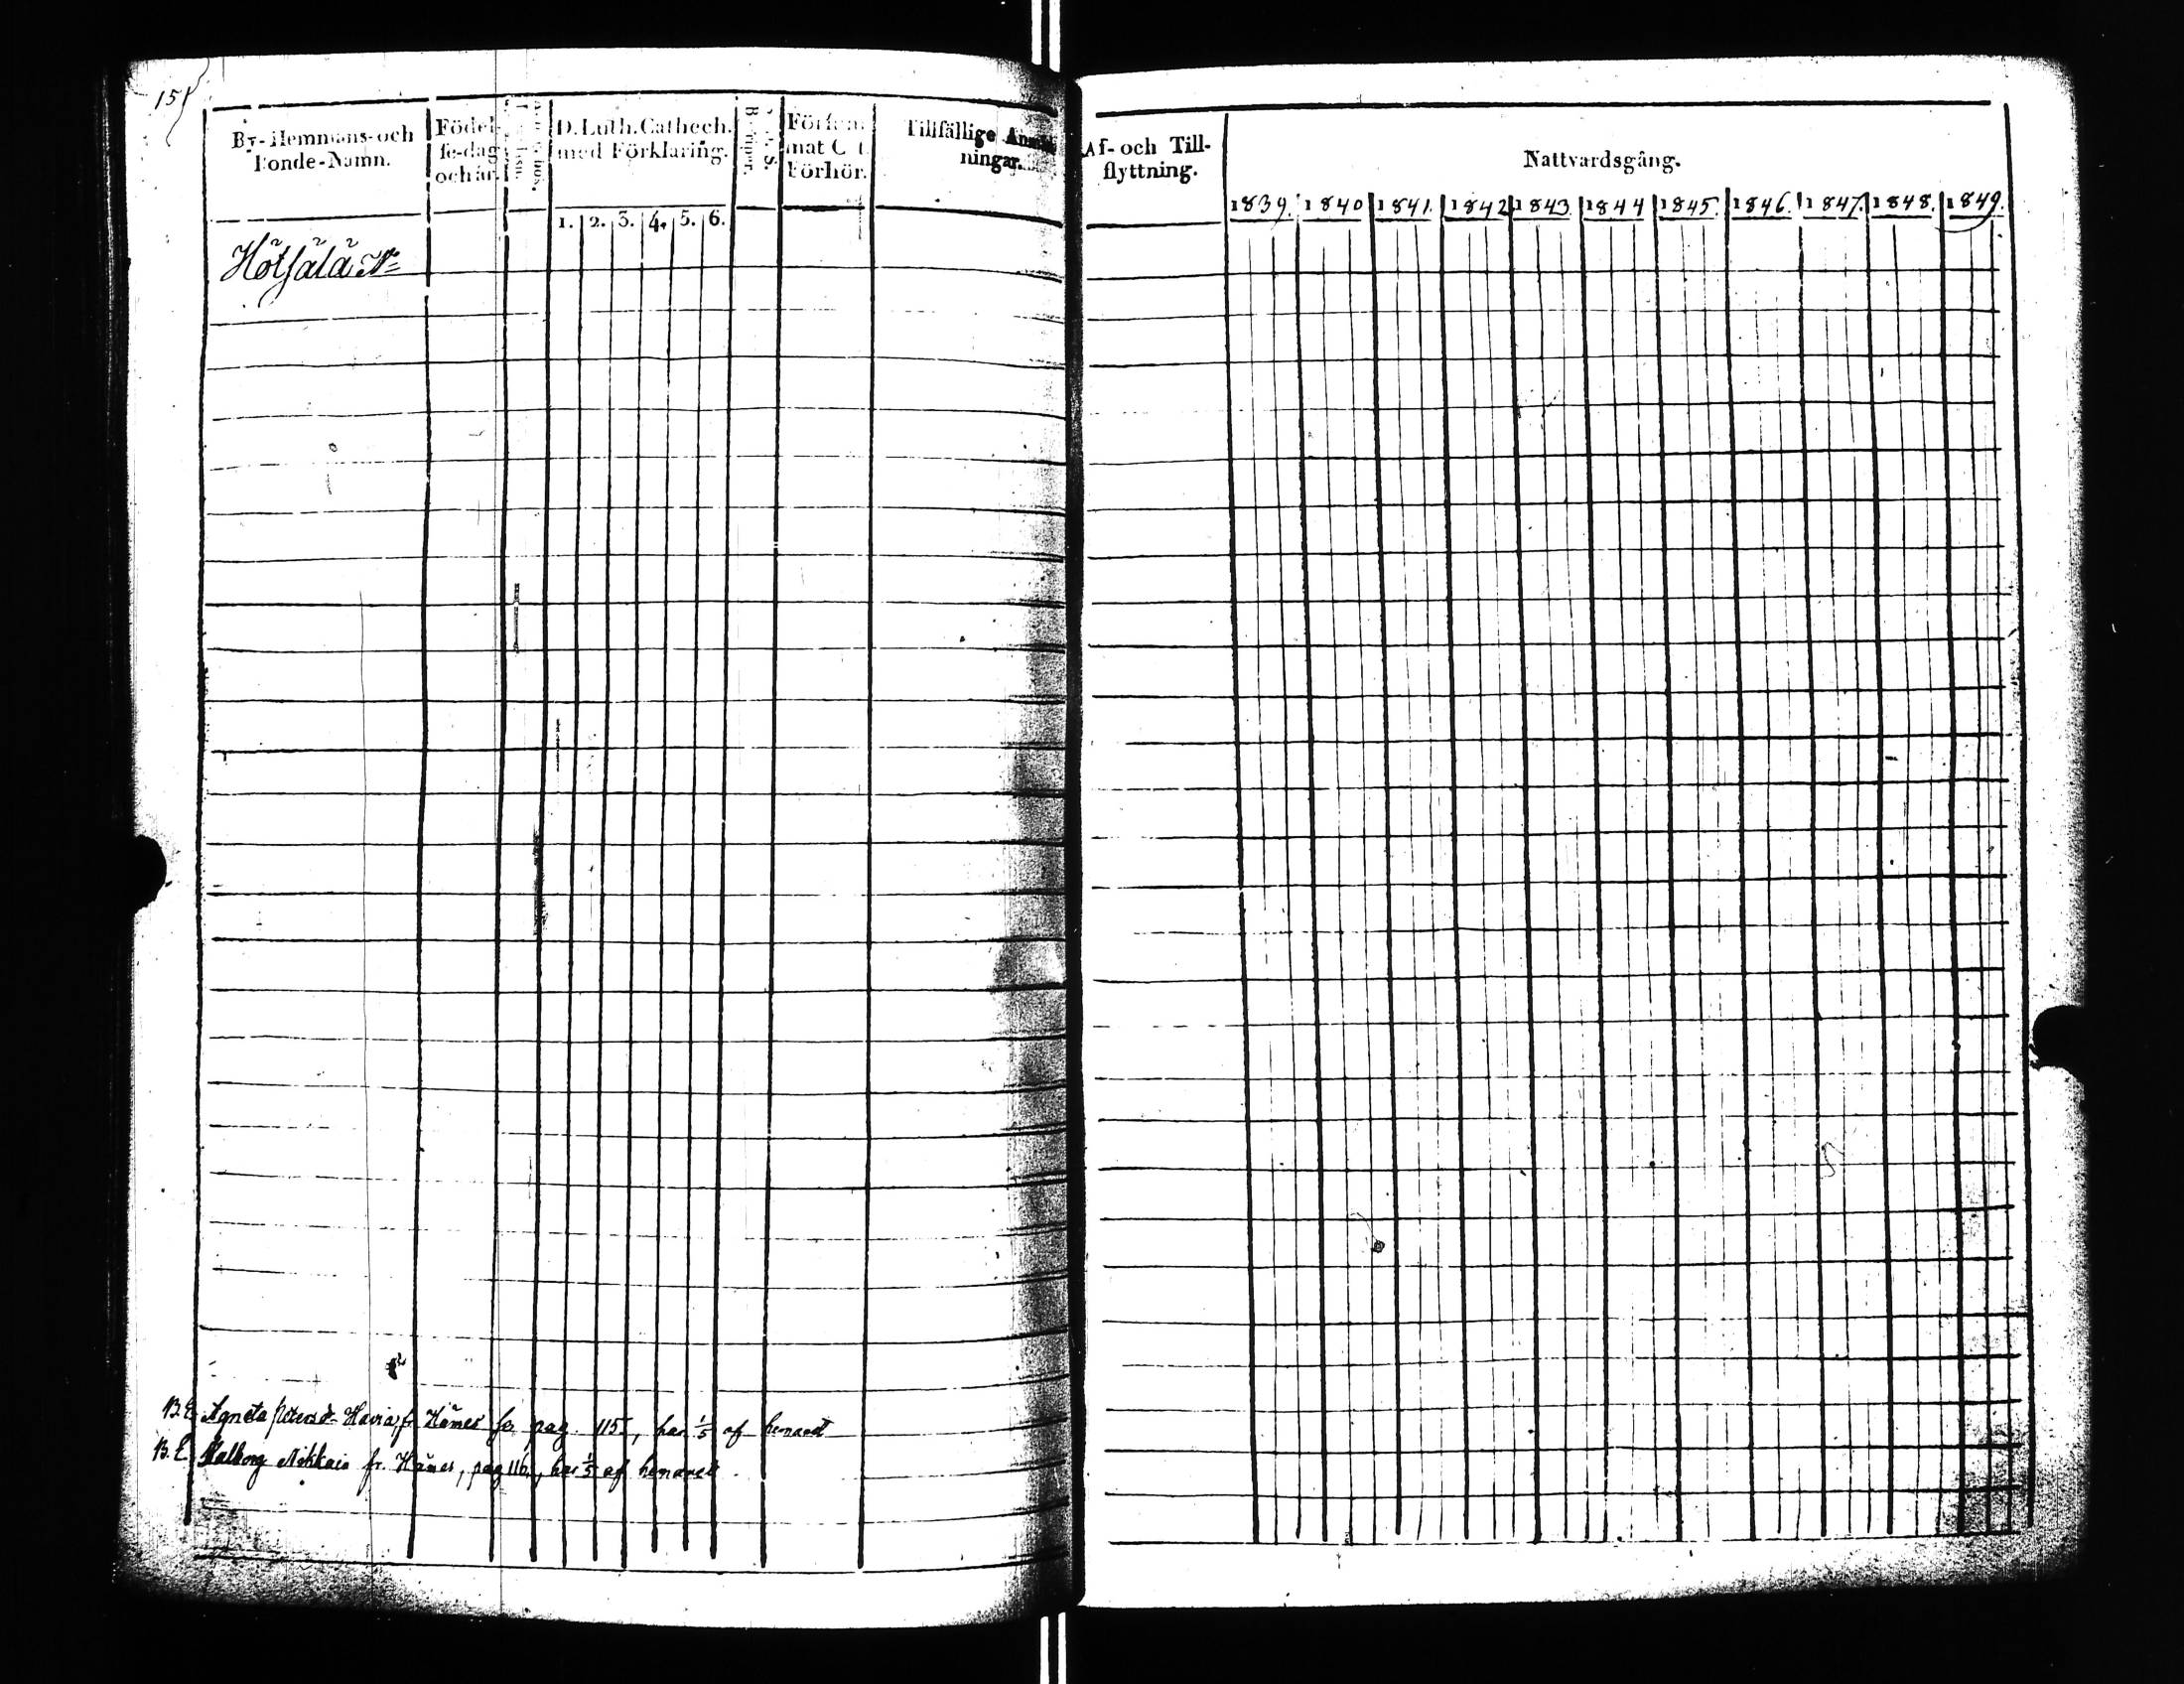 151
By-Hemmans-och Bonde-Namn.
Födel-se-dag och år.
D. Luth. Cathech. med Förklaring.
1. 2. 3. 4. 5. 6.
Försum-mat Cat. Förhör.
Tillfällige Anmärkningar.
Hötsälä N=
B.E. Agneta Petersd. Havia, fr. Hämes pag. 115, har 1/5 af hemanet
B.E. Walborg Mikkais fr. Hämes, pag 116, har 1/5 af hemanet
Af- och Till-flyttning.
Nattvardsgång.
1839. 1840 1841. 1842 1843 1844 1845. 1846. 1847. 1848. 1849.